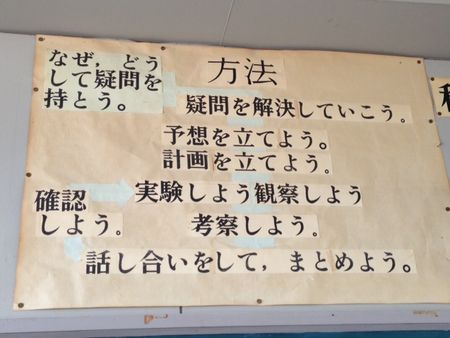 なぜ，どう
して疑問を
持とう。
方法
疑問を解決していこう。
予想を立てよう。
計画を立てよう。
実験しよう観察しよう
確認
しよう。
考察しよう。
話し合いをして，まとめよう。